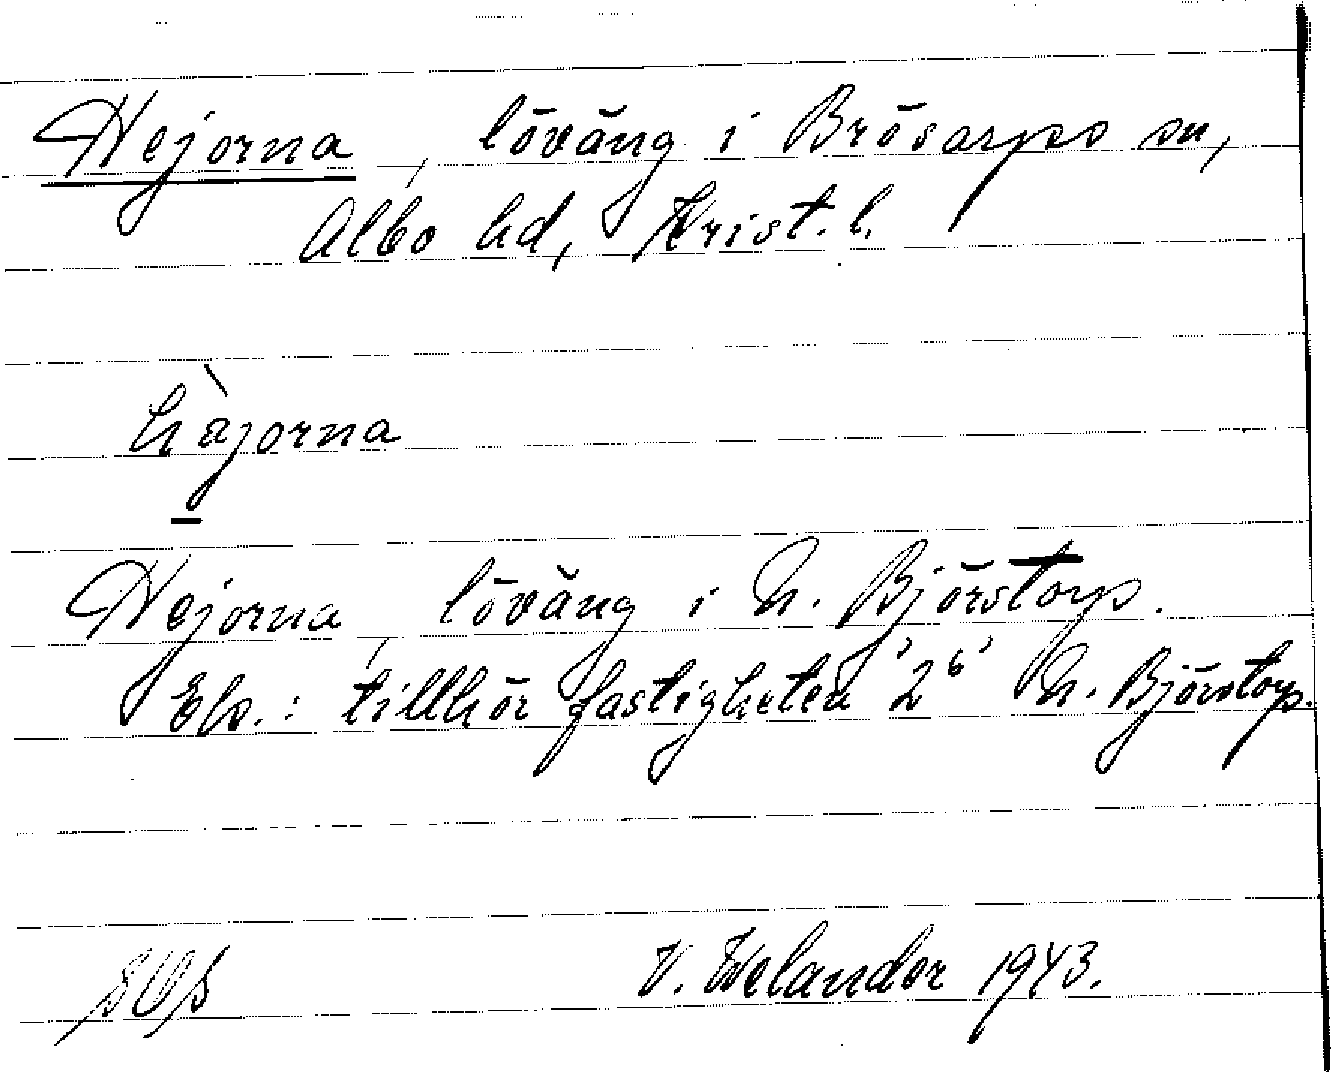 Hejorna, löväng i Brösarps sn,
Albo hd, Krist. l.
hàjorna
Hejorna, löväng i N. Björstorp.
Eb.: tillhör fastigheten '2⁶' N. Björstorp.
V. Welander 1943.